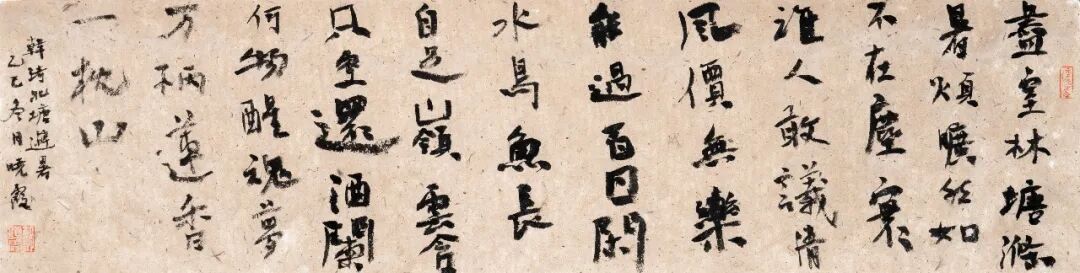 盡室林塘滌
暑煩曠然如
不在塵寰
誰人敢議清
風價無樂
能過百日閑
水鳥魚長
自足嶺雲含
只空還酒闌
何物醒魂夢
万柄蓮香
一枕山
韓琦北塘避暑
乙巳冬日晓霞